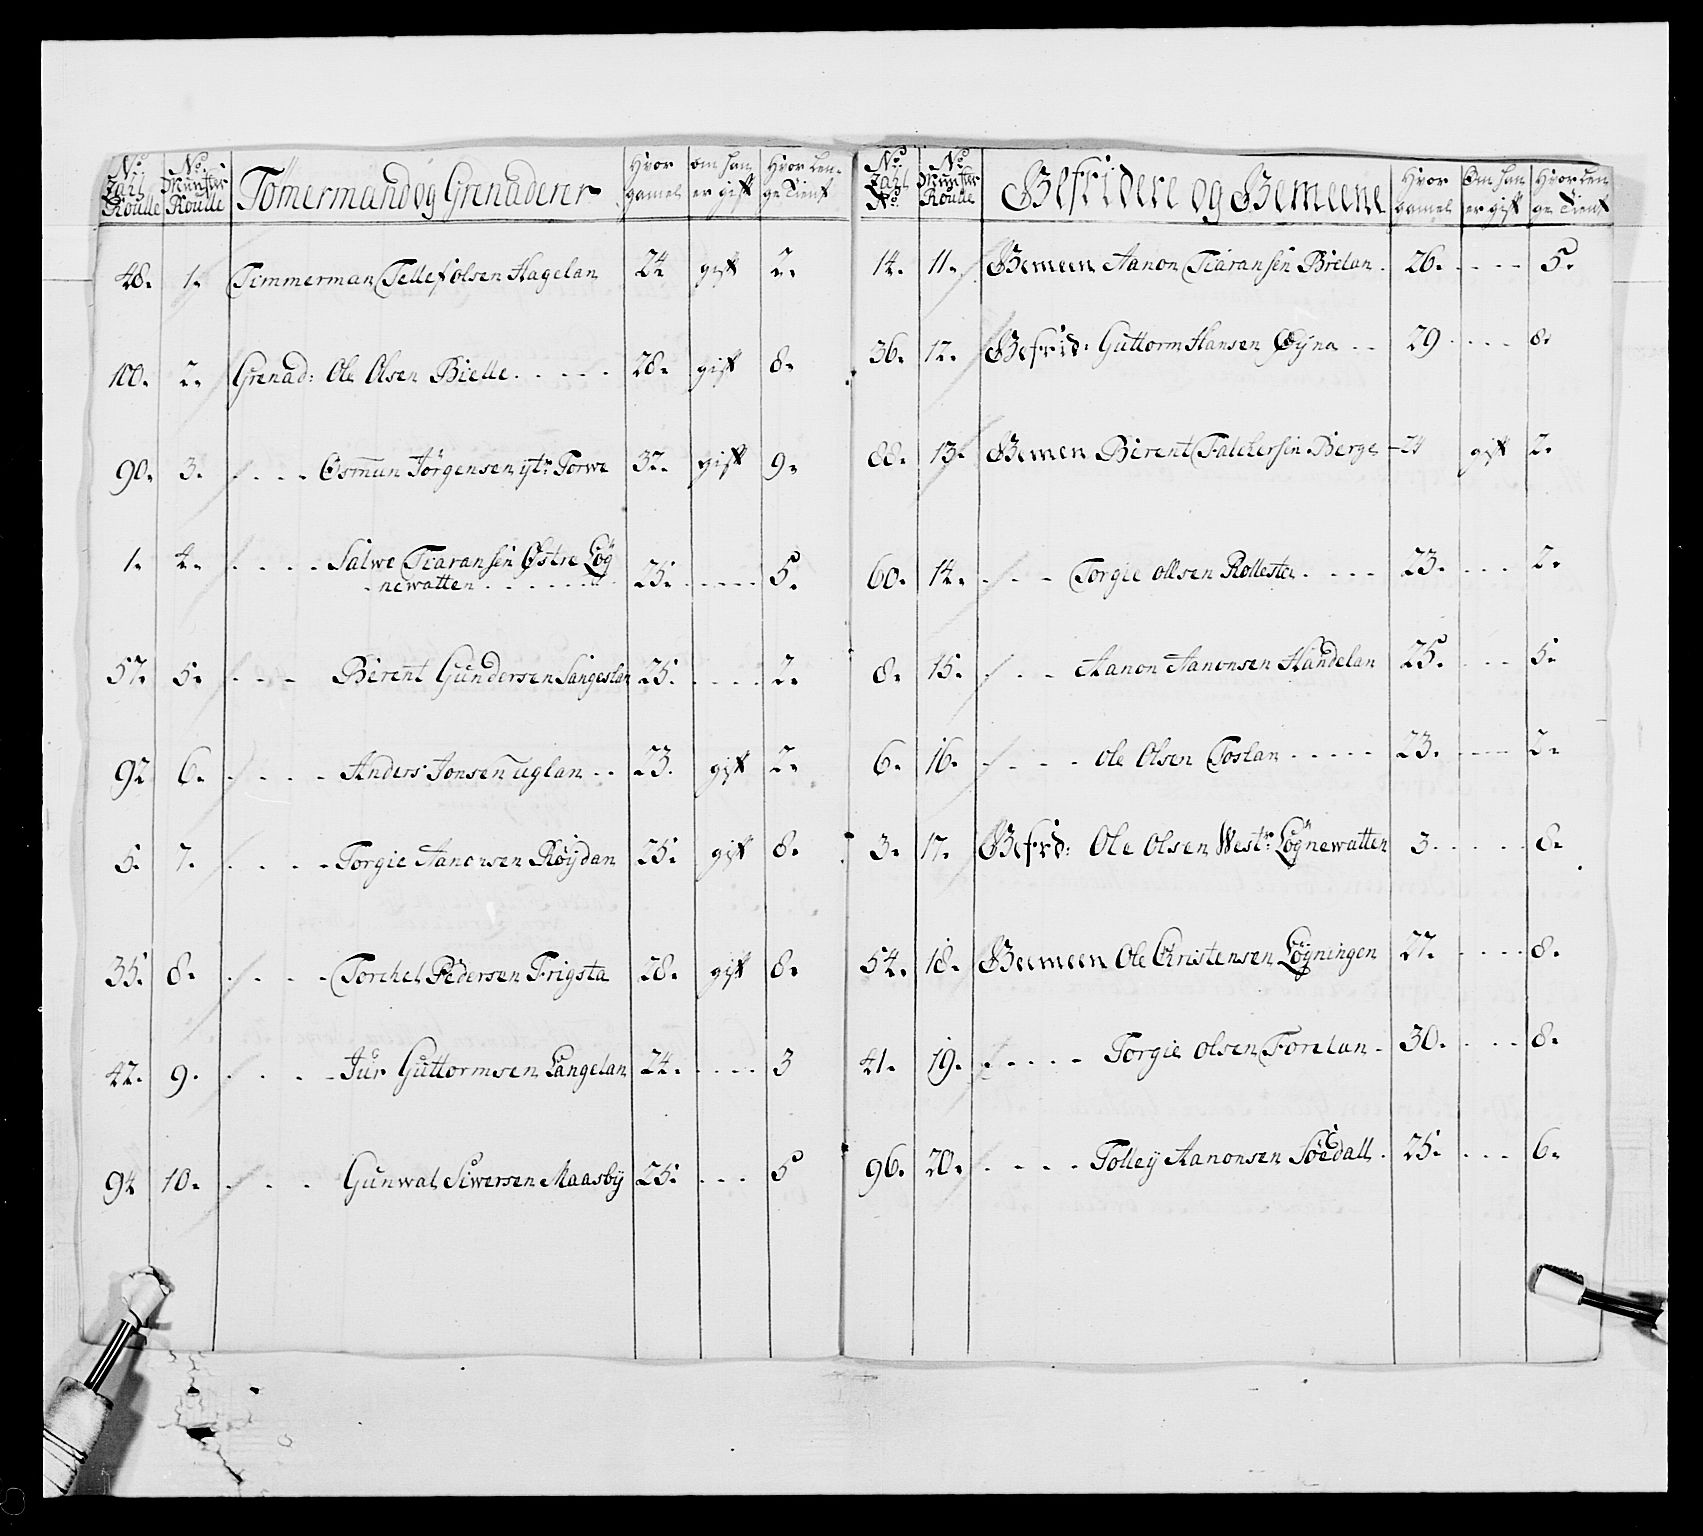 No Zahl Roulle | No Munster Roulle | Tömermand og Grenaderer | Hvor gamel | om han er gift | Hvor len- ge Tient
48. 1. Timmerman Tellef olsen Hagelan 24 gift 2.
100. 2. Grenad: Ole Olsen Bielle. . . . . 28. gift 8.
90. 3. . . . . Osmun Jörgensen ytr Torwe 32. gift 9.
1. 4. . . . . Salwe Tiaransen Östre Lög
newatten . . . . . . 25. . . . . 5.
57. 5. . . . Birent Gundersen Langeslan 25. . . . . 2.
92 6. . . . . Anders Jonsen uglan . . 23. gift 2.
5. 7. . . . . Torgie Aanonsen Röijdan 25. gift 8.
35. 8. . . . . Torchel Pedersen Frigsta 28. gift 8.
42. 9. . . . . Jur Guttormsen Langelan 24. . . . . 3
94 10. . . . Gunwal Siwersen Maasbÿ 25. . . . 5
No. Zahl No. | No Munster Roulle | Befridere og Gemeene | Hvor gamel | Om han er gift | Hvor len ge Tient
14. 11. Gemeen Aanon Tiaransen Brelan . 26. . . . . 5.
36. 12. Gefrid: Guttorm Hansen Øÿna . . 29 . . . . 8.
88. 13. Gemen Birent Falchersen Berge - 24 gift 2.
60. 14. . . . Torgie ollsen Rollestei . . . . 23. . . . 2.
8. 15. . . . Aanon Aanonsen Handelan 25. . . . 5.
6. 16. . . . . Ole Olsen Toslan . . . . . 23. . . . . 2.
3. 17. Gefrd: Ole Olsen Westr: Lögnewatten 3. . . . . 8.
54. 18. Gemeen Ole Christensen Lögningen 27. . . . . 8.
41. 19. . . . . Torgie olsen Forelan . 30. . . . 8.
96. 20. . . . . Tolleÿ Aanonsen Söedall . 25. . . . 6.